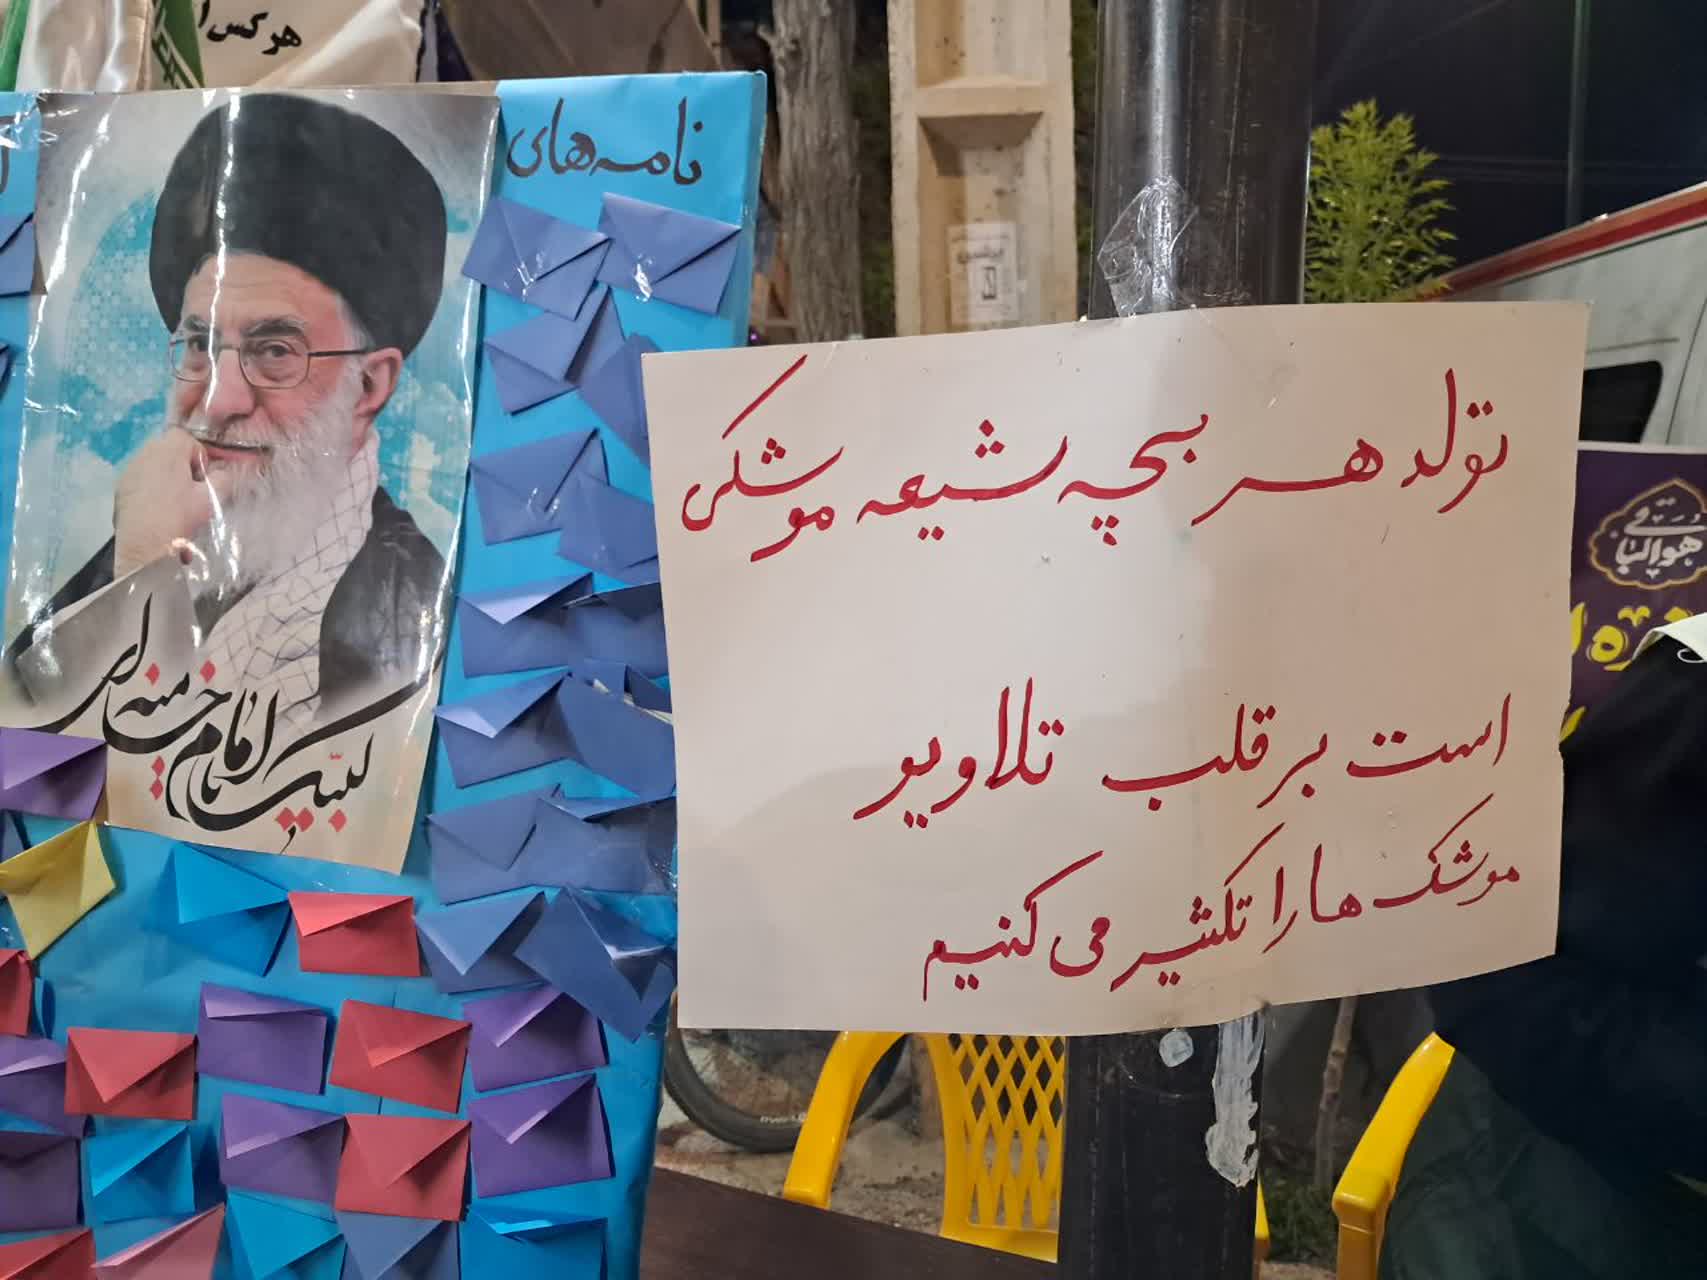 هر کس ا
نامه‌های
لبیک امام خامنه‌ای
تولد هر بچه شیعه موشکی
است بر قلب تلاویو
موشک ها را تکثیر می کنیم
هوالباقی